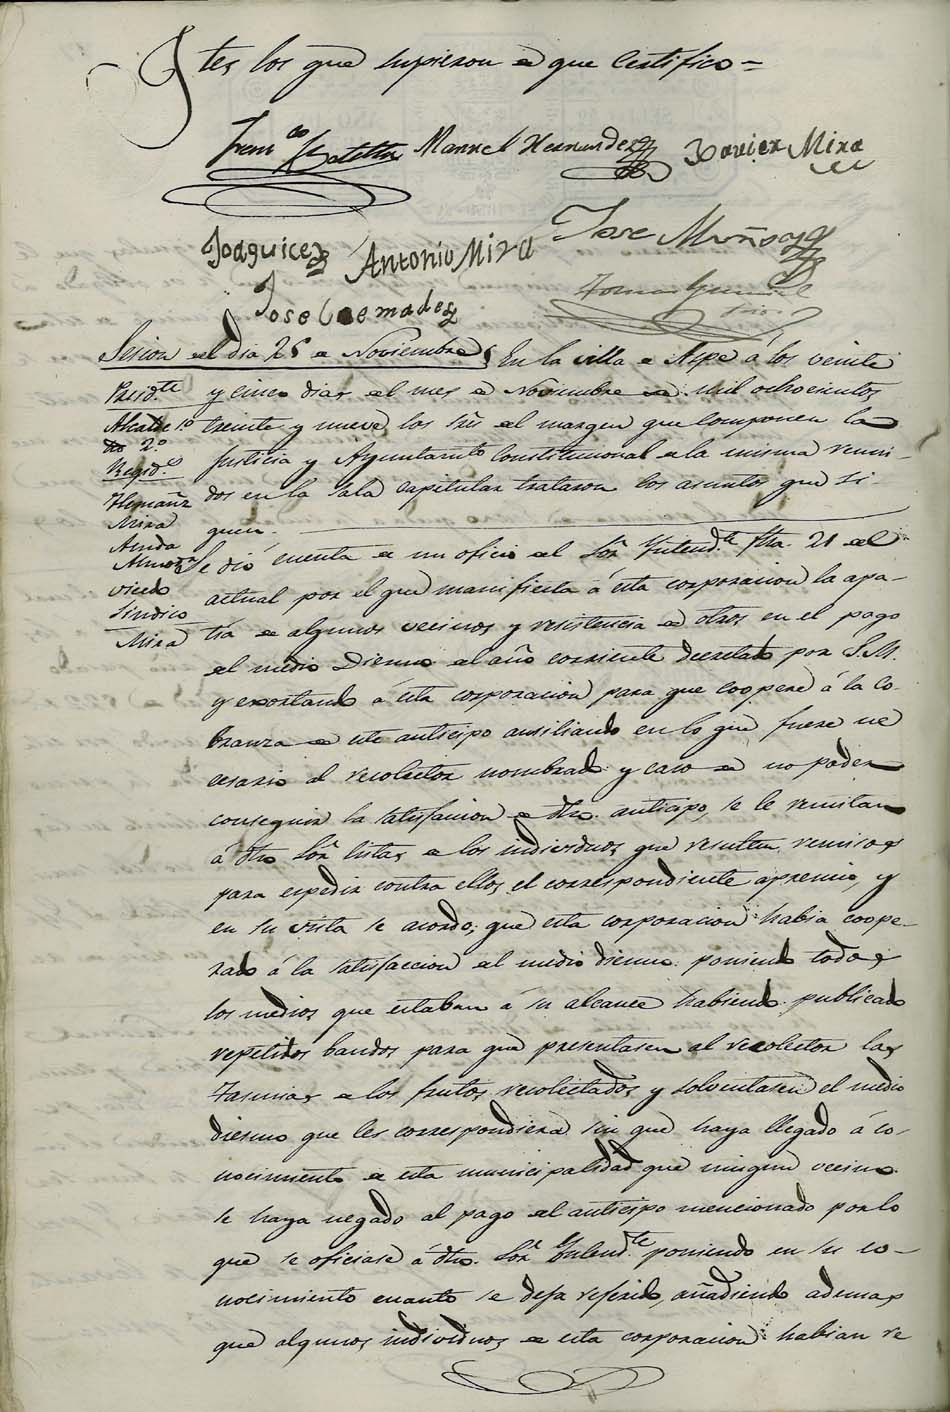 tes los que supieron de que Certifico =
Manuel Hernandez Xavier Mira
Jose Muñoz
Antonio Mira
Jose Cremades
Sesion del dia 25 de Noviembre
En la villa de Aspe á los veinte
Presid.te
y cinco dias del mes de Noviembre de mil ochocientos
Alcalde 1º
treinta y nueve los Sres del margen que componen la
2º
Justicia y Ayuntamto Constitucional de la misma reuni-
Regid.s
dos en la Sala Capitular trataron los asuntos que si-
Mira
guen.
Se dió cuenta de un oficio del Sor Yntend.te fha. 21 del
actual por el que manifiesta á esta corporacion la apa-
Sindico
tia de algunos vecinos y resistencia de otros en el pago
Mira
del medio Diezmo del año corriente decretado por S.M.
y exortando á esta corporacion para que coopere á la co-
branza de este anticipo ausiliando en lo que fuere ne
cesario al recolector nombrado y caso de no poder
conseguir la satisfacion de dho. anticipo, se le remitan
á dho Sor listas de los individuos que resulten remisos
para expedir contra ellos el correspondiente apremio, y
en su vista se acordó; que esta corporacion habia coope-
rado á la satisfaccion del medio diezmo poniendo todos
los medios que estaban á su alcance habiendo publicado
repetidos bandos para que presentasen al recolector las
Tasmias de los frutos recolectados y solventasen el medio
diezmo que les correspondiera sin que haya llegado á co-
nocimiento de esta municipalidad que ningun vecino
se haya negado al pago del anticipo mencionado por lo
que se oficiase á dho. Sor Yntend.te poniendo en su co-
nocimiento cuanto se deja referido, añadiendo ademas
que algunos individuos de esta corporacion habian re